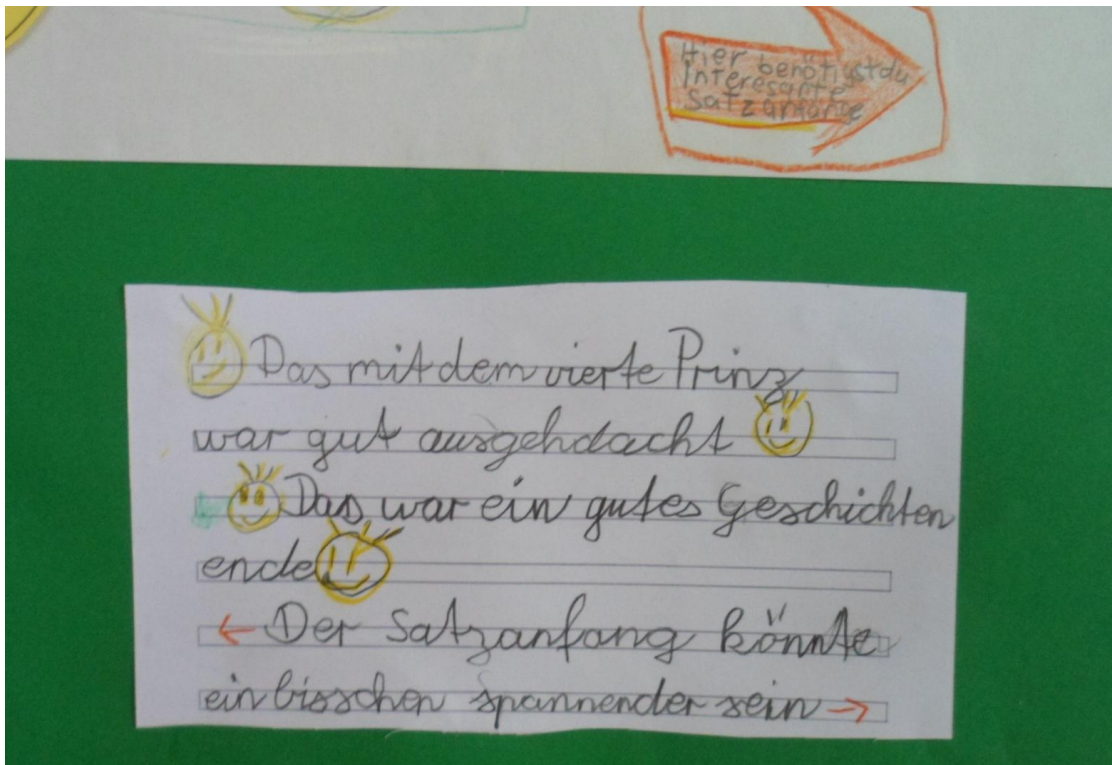 Hier benötigst du
Interesante
Satzanfänge
Das mit dem vierte Prinz
war gut ausgehdacht
Das war ein gutes Geschichten
ende
Der Satzanfang könnte
ein bisschen spannender sein